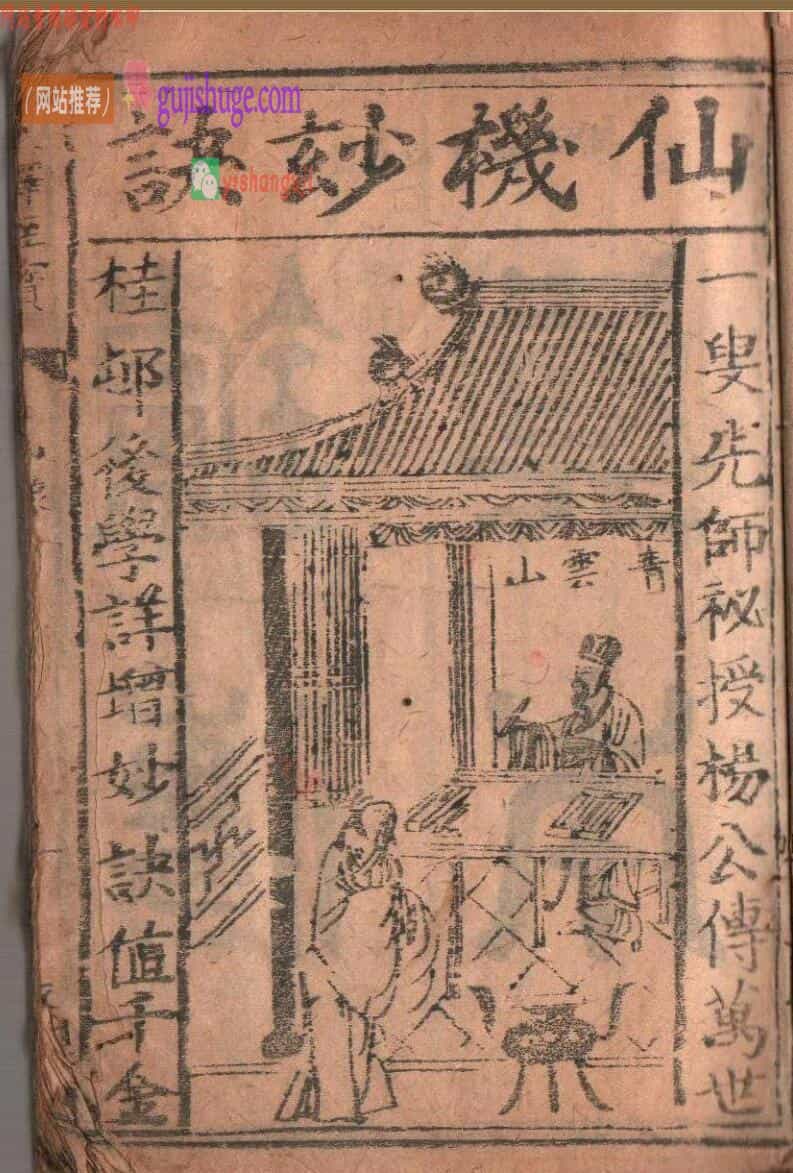 （网站推荐）
gujishuge.com
仙機玅訣
一叟先師祕授楊公傳萬世
青雲山
桂邨後學詳增妙訣值千金